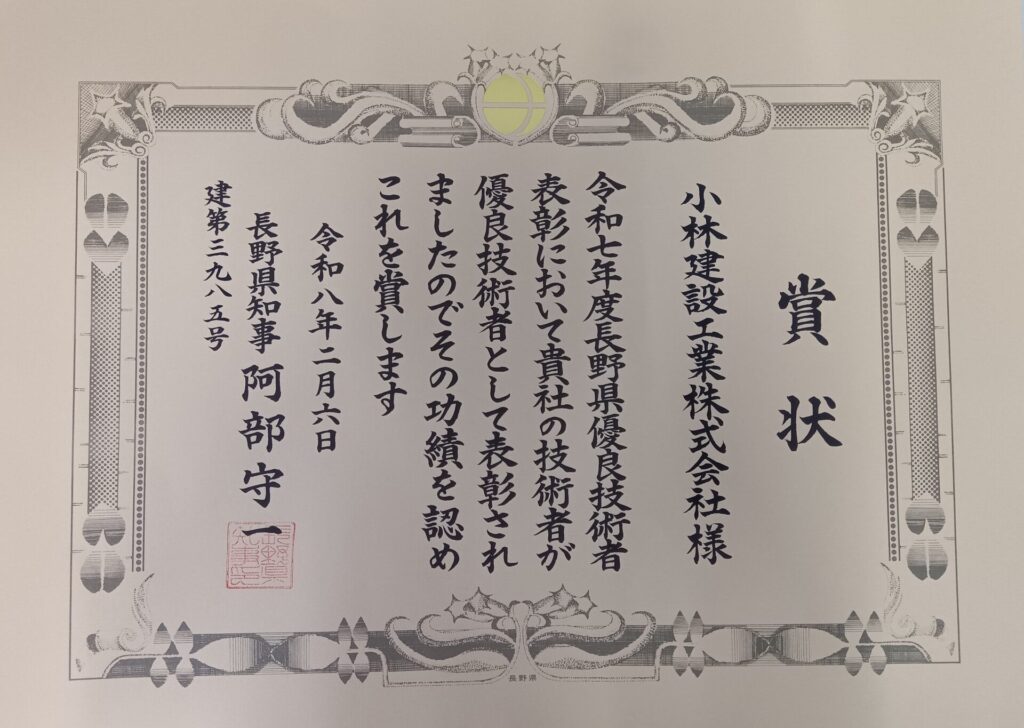 賞状
小林建設工業株式会社様
令和七年度長野県優良技術者
表彰において貴社の技術者が
優良技術者として表彰され
ましたのでその功績を認め
これを賞します
令和八年二月六日
長野県知事 阿部守一
長野県知事印
建第三九八五号
長野県